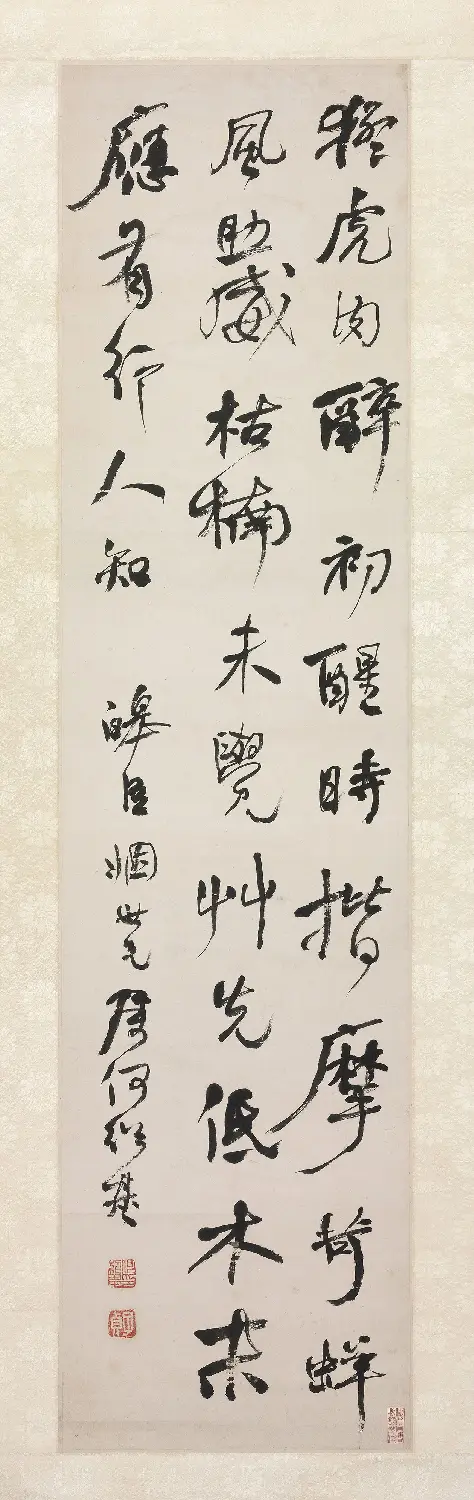 猛虎肉醉初醒時揩摩苛蛘
風助威枯楠未覺艸先低木末
應有行人知 皞臣姻世兄屬何紹基